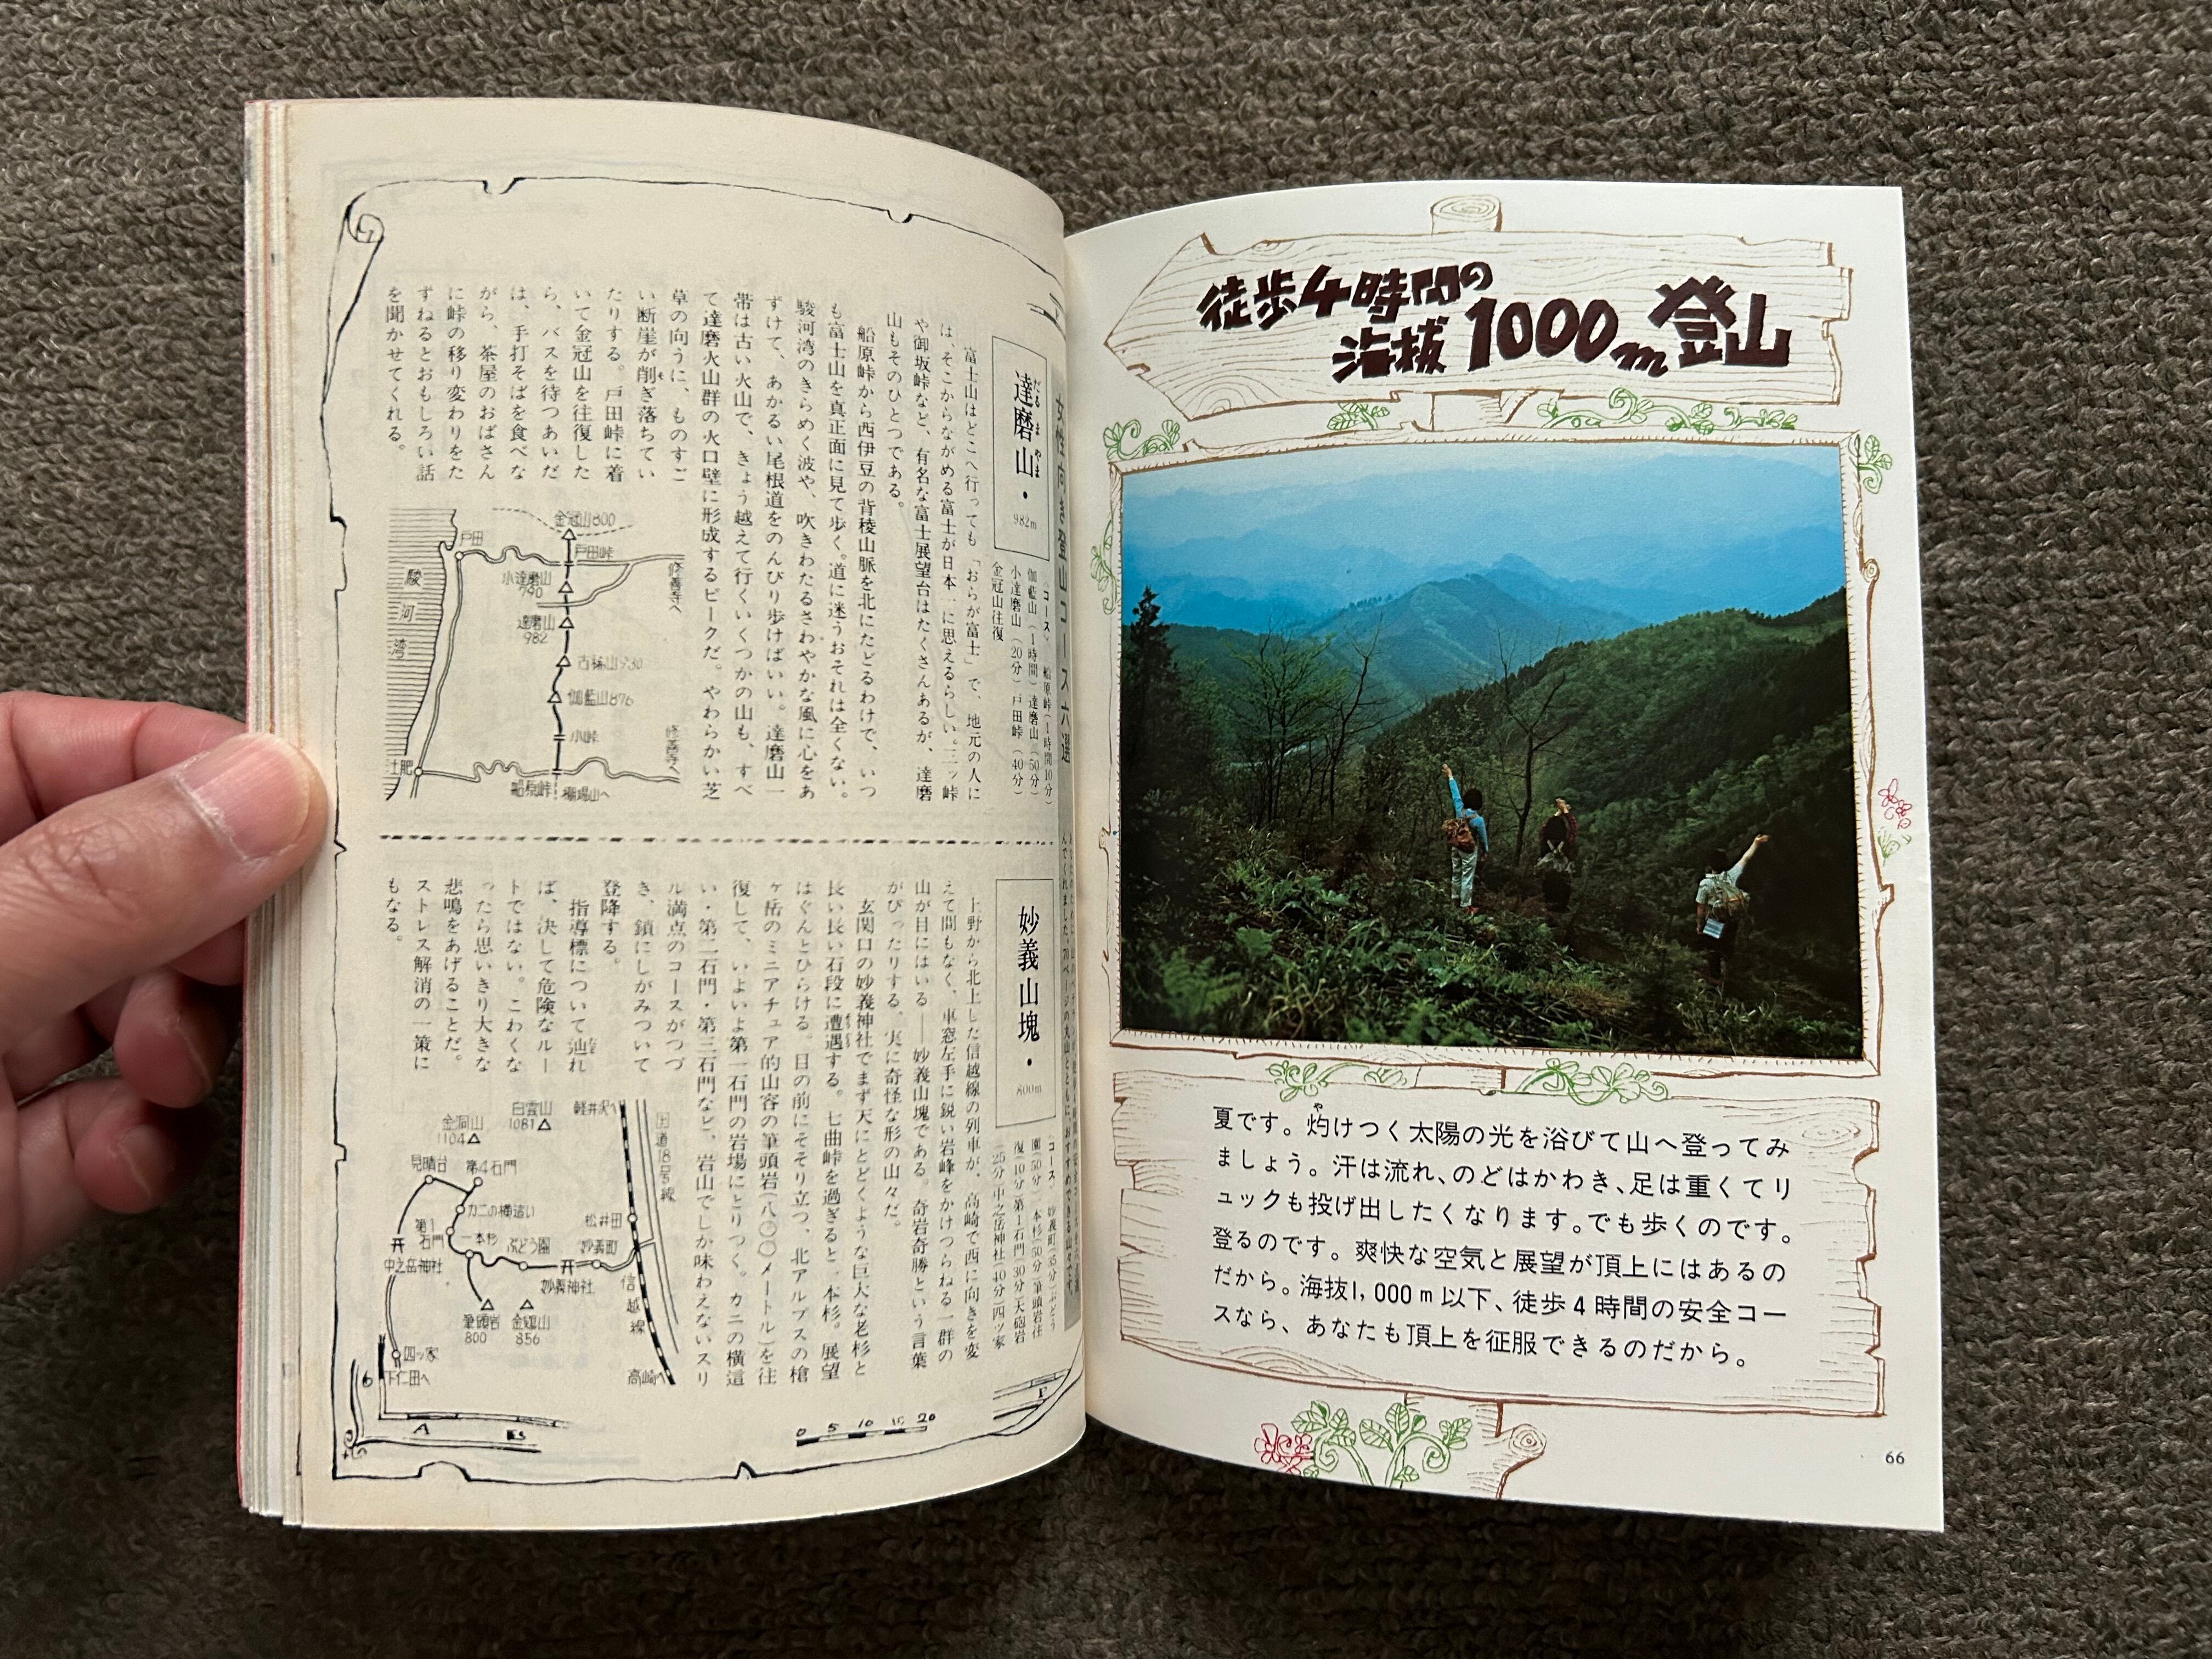 徒歩4時間の
海抜1000m登山
夏です。灼けつく太陽の光を浴びて山へ登ってみ
や
ましょう。汗は流れ、のどはかわき、足は重くてリ
ュックも投げ出したくなります。でも歩くのです。
登るのです。爽快な空気と展望が頂上にはあるの
だから。海抜1,000m以下、徒歩4時間の安全コー
スなら、あなたも頂上を征服できるのだから。
66
女性向き登山コース六選
達磨山・
だるまやま
982m
〈コース〉 船原峠(1時間10分)
伽藍山(1時間)達磨山(50分)
小達磨山(20分)戸田峠(40分)
金冠山往復
富士山はどこへ行っても「おらが富士」で、地元の人に
は、そこからながめる富士が日本一に思えるらしい。三ッ峠
や御坂峠など、有名な富士展望台はたくさんあるが、達磨
山もそのひとつである。
船原峠から西伊豆の背稜山脈を北にたどるわけで、いつ
も富士山を真正面に見て歩く。道に迷うおそれは全くない。
駿河湾のきらめく波や、吹きわたるさわやかな風に心をあ
ずけて、あかるい尾根道をのんびり歩けばいい。達磨山一
帯は古い火山で、きょう越えて行くいくつかの山も、すべ
て達磨火山群の火口壁に形成するピークだ。やわらかい芝
草の向うに、ものすご
い断崖が削ぎ落ちてい
たりする。戸田峠に着
いて金冠山を往復した
ら、バスを待つあいだ
は、手打そばを食べな
がら、茶屋のおばさん
に峠の移り変わりをた
ずねるとおもしろい話
を聞かせてくれる。
金冠山800
戸田
戸田峠
修善寺へ
小達磨山
790
達磨山
982
駿河湾
伽藍山876
小峠
修善寺へ
土肥
船原峠
妙義山塊・
800m
コース 妙義町(35分)ぶどう
園(50分)一本杉(50分)筆頭岩往
復(10分)第1石門(30分)大砲岩
(25分)中之岳神社(40分)四ツ家
上野から北上した信越線の列車が、高崎で西に向きを変
えて間もなく、車窓左手に鋭い岩峰をかけつらねる一群の
山が目にはいる——妙義山塊である。奇岩奇勝という言葉
がぴったりする。実に奇怪な形の山々だ。
玄関口の妙義神社でまず天にとどくような巨大な老杉と
長い長い石段に遭遇する。七曲峠を過ぎると一本杉。展望
はぐんとひらける。目の前にそそり立つ、北アルプスの槍
ヶ岳のミニアチュア的山容の筆頭岩(八〇〇メートル)を往
復して、いよいよ第一石門の岩場にとりつく。カニの横這
い・第二石門・第三石門など、岩山でしか味わえないスリ
ル満点のコースがつづ
き、鎖にしがみついて
登降する。
指導標について辿れ
ば、決して危険なルー
トではない。こわくな
ったら思いきり大きな
悲鳴をあげることだ。
ストレス解消の一策に
もなる。
白雲山
1081
軽井沢へ
金洞山
1104
見晴台
第4石門
カニの横這い
第1石門
一本杉
ぶどう園
妙義町
松井田
中之岳神社
妙義神社
信越線
筆頭岩
800
金鶏山
856
四ッ家
下仁田へ
高崎へ
0 5 10 15 20